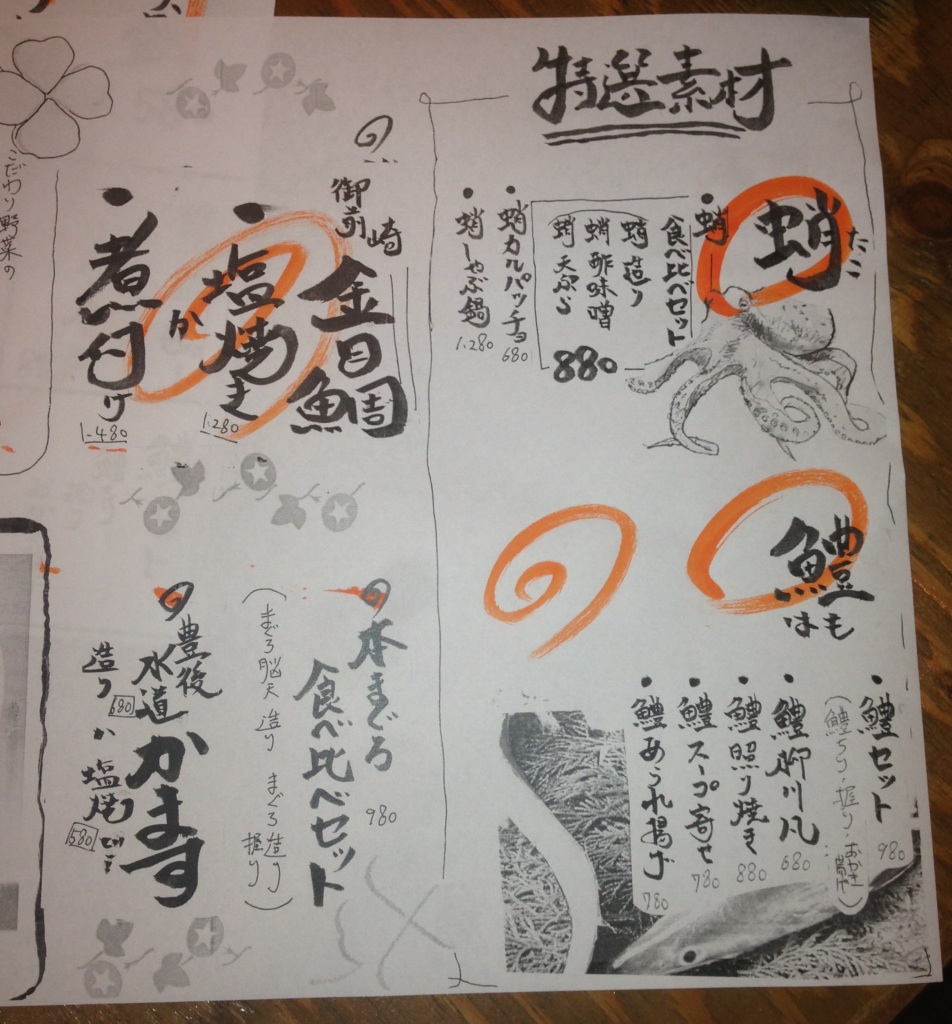 特選素材
蛸
たこ
蛸
食べ比べセット
蛸造り
蛸酢味噌
蛸天ぷら
880
蛸カルパッチョ
680
蛸しゃぶ鍋
1.280
鱧
はも
鱧セット
980
(鱧ちり・握り・おかき揚げ)
鱧柳川風
680
鱧照り焼き
880
鱧スープ寄せ
780
鱧あられ揚げ
780
御前崎
金目鯛
塩焼き
1.280
か
煮付け
1.480
本まぐろ
食べ比べセット
980
(まぐろ脳天造り まぐろ造り 握り)
豊後
水道
かます
造り
680
か
塩焼
580
こだわり野菜の